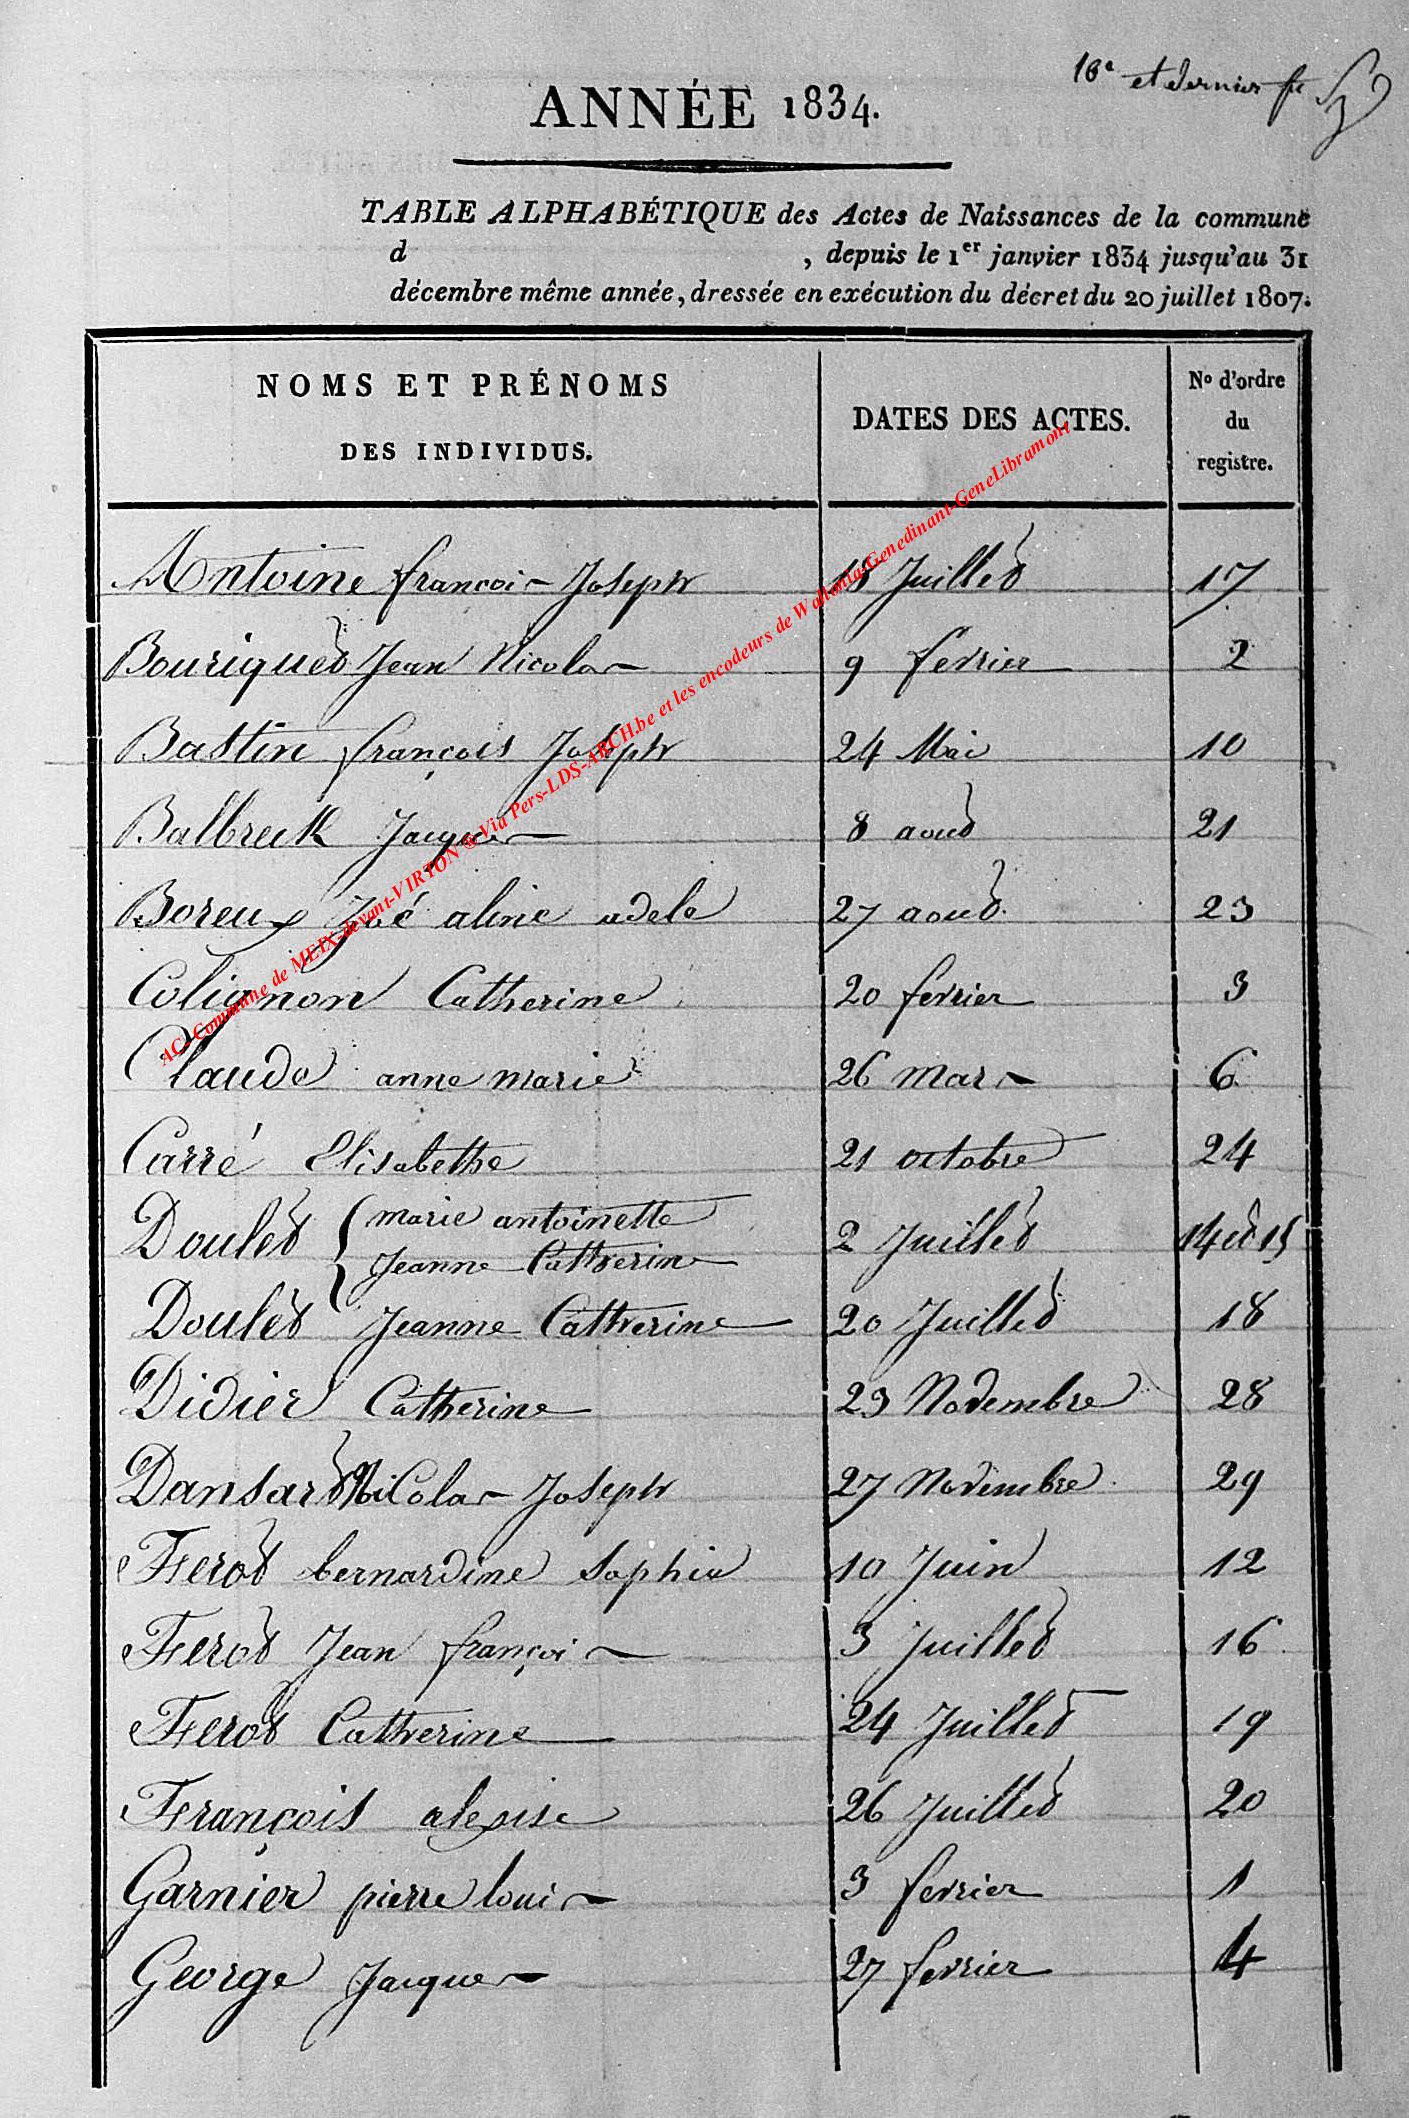 16e et dernier f
ANNÉE 1834.
TABLE ALPHABÉTIQUE des Actes de Naissances de la commune
d , depuis le 1er janvier 1834 jusqu'au 31
décembre même année, dressée en exécution du décret du 20 juillet 1807.
NOMS ET PRÉNOMS
DES INDIVIDUS.
DATES DES ACTES.
No d'ordre
du
registre.
Antoine francois Joseph 18 Juillet 17
Bouriquet Jean Nicolas 9 fevrier 2
Bastin françois Joseph 24 Mai 10
Balbreck Jacques 8 aout 21
Boreux Zoé aline adele 27 aout 23
Colignon Catherine 20 fevrier 3
Claude anne marie 26 mars 6
Carré Elisabethe 21 octobre 24
Doulet { marie antoinette
Jeanne Catherine 2 Juillet 14 et 15
Doulet Jeanne Catherine 20 Juillet 18
Didier Catherine 23 Novembre 28
Dansart Nicolas Joseph 27 Novembre 29
Ferot bernardine Sophie 10 Juin 12
Ferot Jean françois 3 Juillet 16
Ferot Catherine 24 Juillet 19
François alexise 26 Juillet 20
Garnier pierre louis 3 fevrier 1
George Jacques 27 fevrier 4
AC-Commune de MEIX-devant-VIRTON @ Via Pers-LDS-ARCH.be et les encodeurs de Wallonia-Genedinant-GeneLibramont